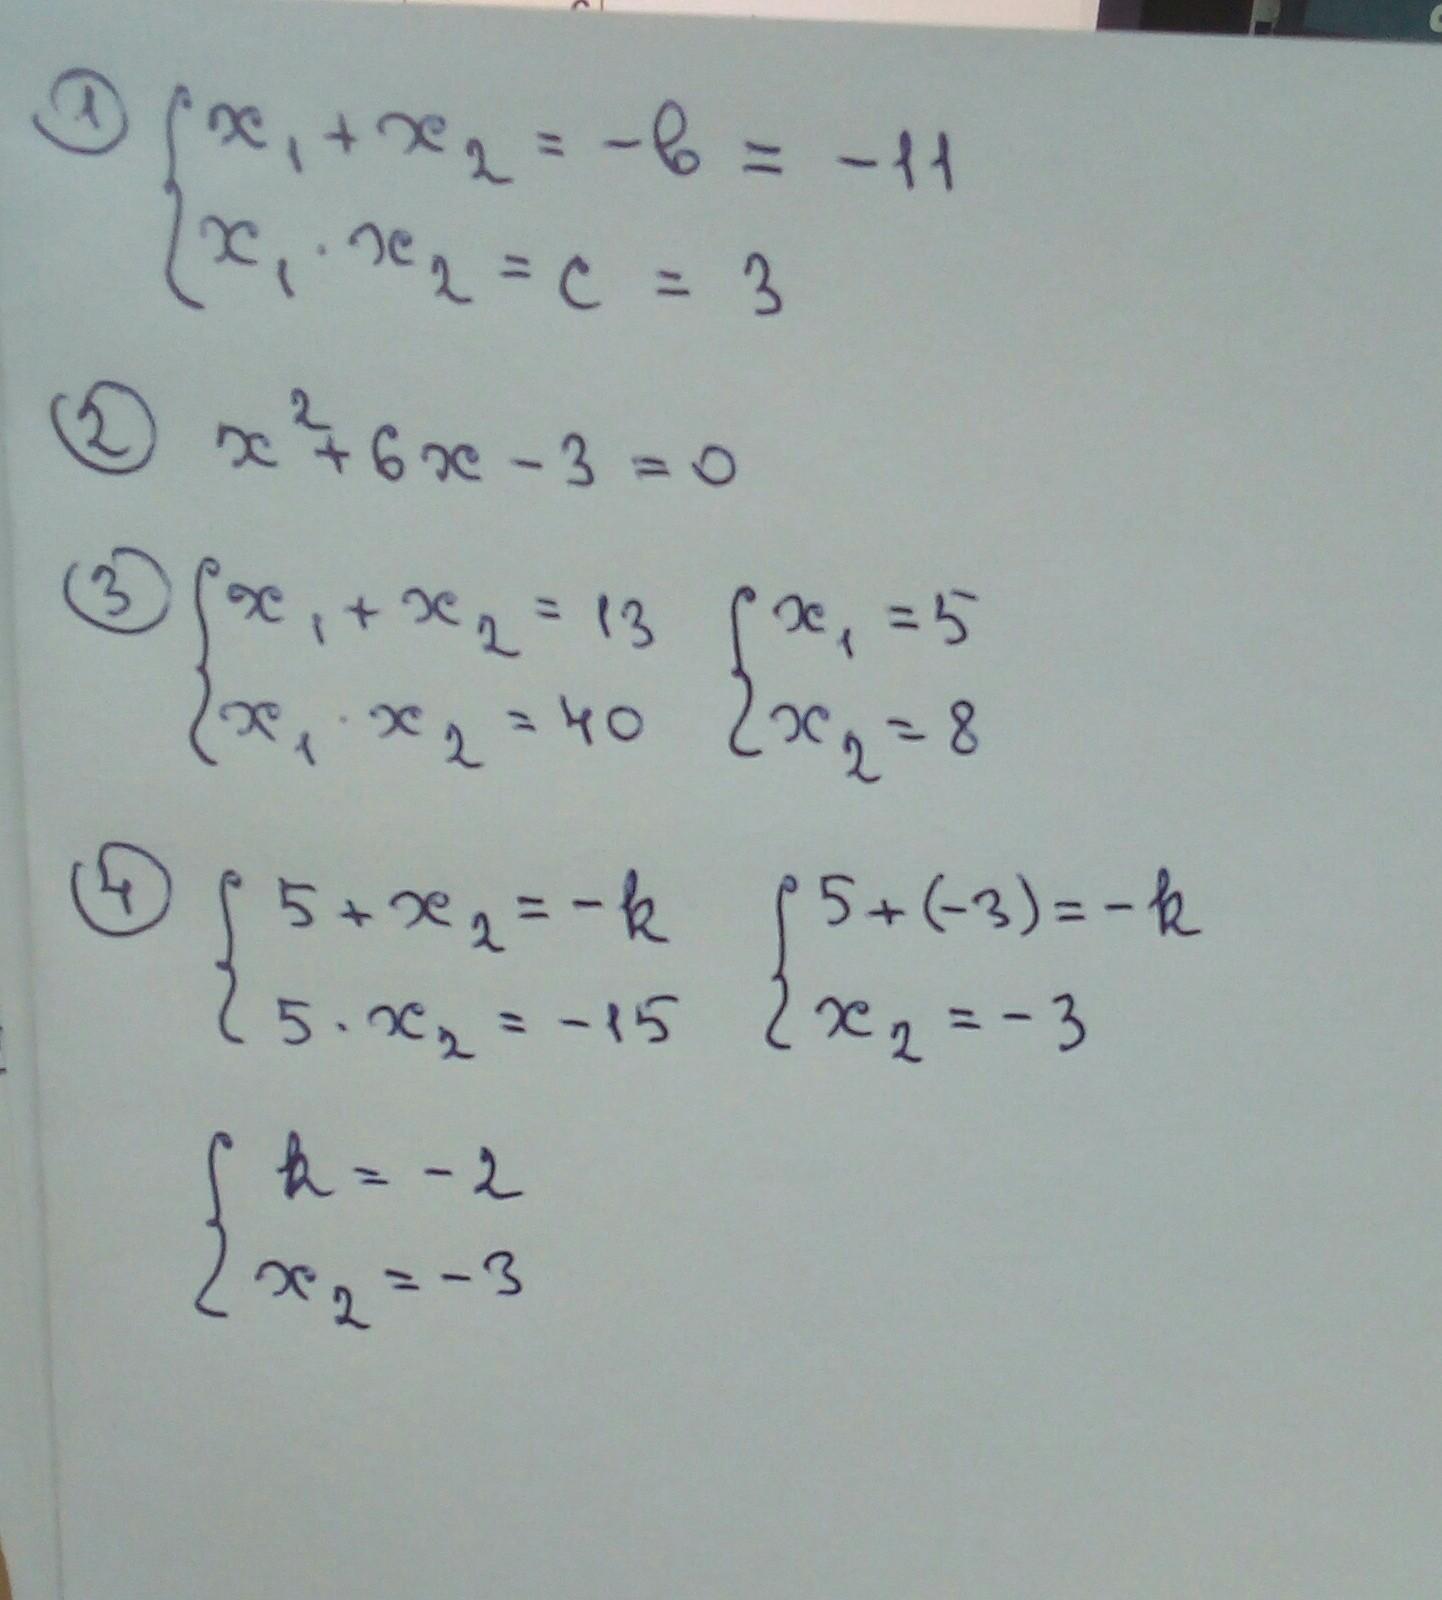 ① { x₁ + x₂ = -b = -11
x₁ · x₂ = c = 3
② x² + 6x - 3 = 0
③ { x₁ + x₂ = 13 { x₁ = 5
x₁ · x₂ = 40 x₂ = 8
④ { 5 + x₂ = -k { 5 + (-3) = -k
5 · x₂ = -15 x₂ = -3
{ k = -2
x₂ = -3